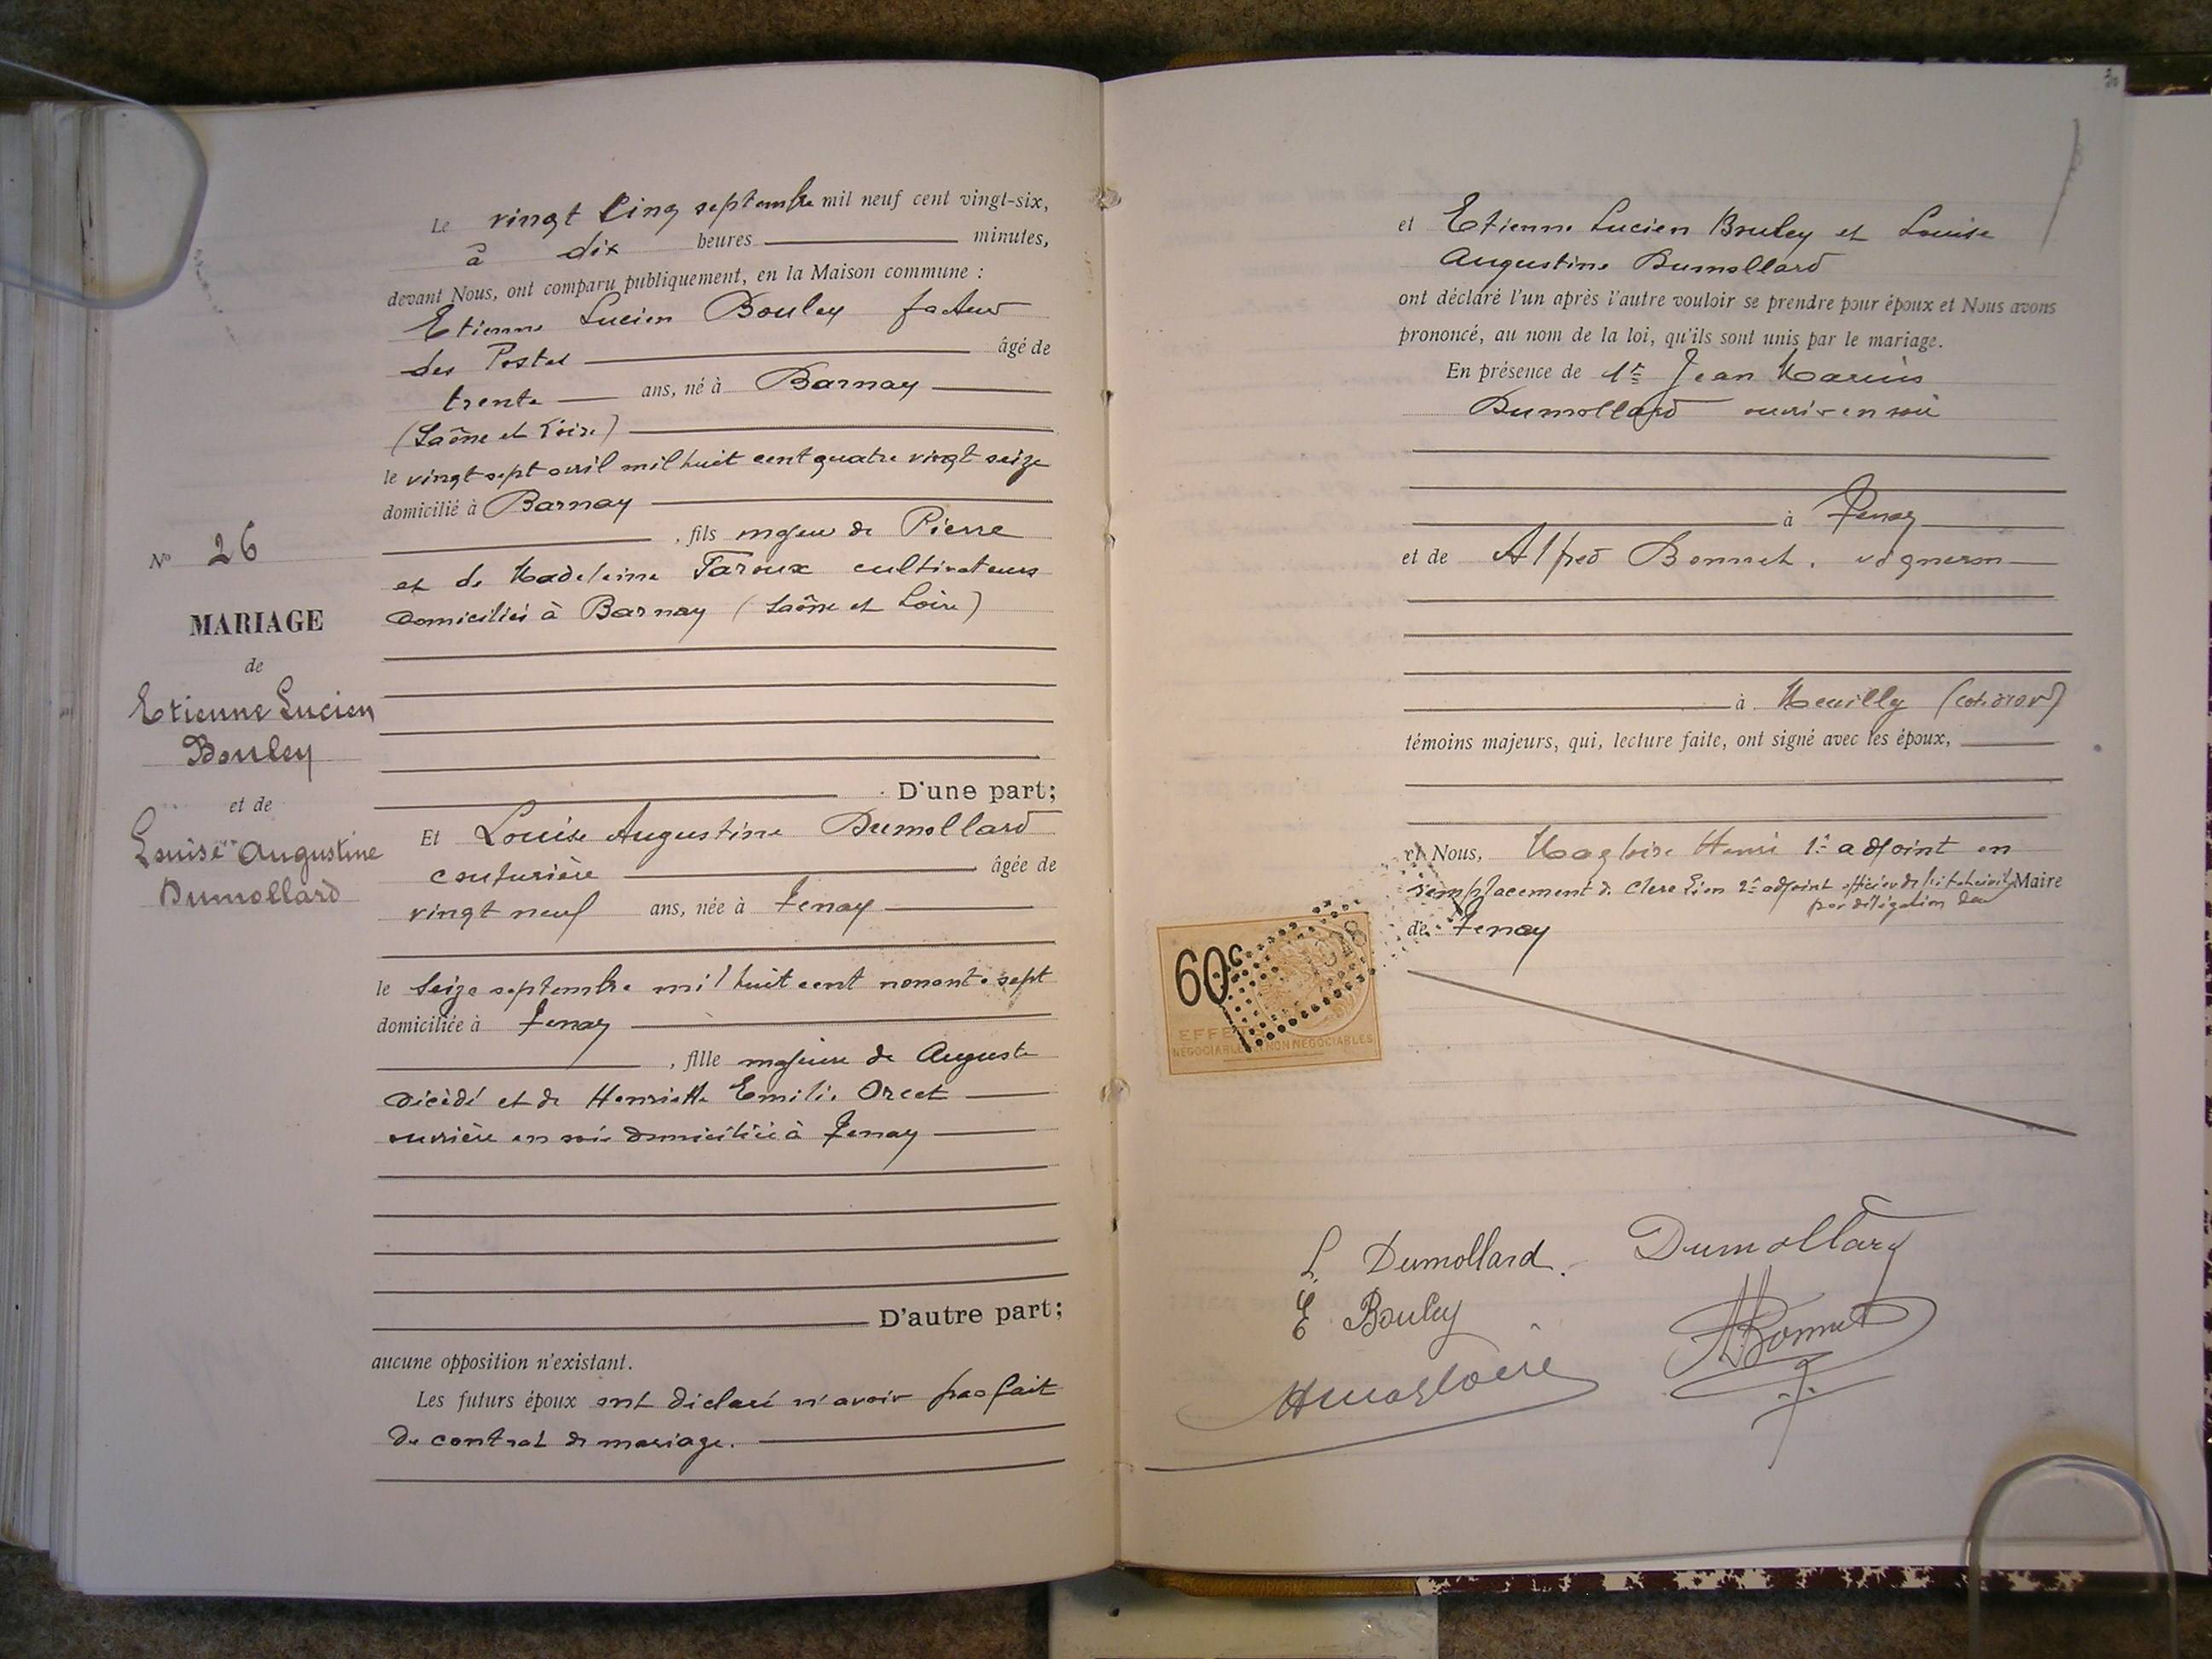 Le vingt Cinq septembre mil neuf cent vingt-six,
à dix heures minutes,
devant Nous, ont comparu publiquement, en la Maison commune :
Etienne Lucien Bouley facteur
des Postes âgé de
trente ans, né à Barnay
(Saône et Loire)
le vingt sept avril mil huit cent quatre vingt seize
domicilié à Barnay
, fils majeur de Pierre
et de Madeleine Taroux cultivateurs
domiciliés à Barnay (Saône et Loire)
No 26
MARIAGE
de
Etienne Lucien
Bouley
et de
Louise Augustine
Dumollard
D'une part;
Et Louise Augustine Dumollard
couturière âgée de
vingt neuf ans, née à Tenay
le Seize septembre mil huit cent nonante sept
domiciliée à Tenay
, fille majeure de Auguste
décédé et de Henriette Emilie Orcet
ouvrière en soie domiciliée à Tenay
D'autre part;
aucune opposition n'existant.
Les futurs époux ont déclaré n'avoir pas fait
de contrat de mariage.
et Etienne Lucien Bouley et Louise
Augustine Dumollard
ont déclaré l'un après l'autre vouloir se prendre pour époux et Nous avons
prononcé, au nom de la loi, qu'ils sont unis par le mariage.
En présence de 1º Jean Marius
Dumollard ouvrier en soie
à Tenay
et de Alfred Bonnet, vigneron
à Meuilly (cote d'or)
témoins majeurs, qui, lecture faite, ont signé avec les époux,
et Nous, Magloire Henri 1er adjoint en
remplacement de Clerc 2e adjoint officier de l'état civil Maire
par délégation du
de Tenay
60c
EFFETS
NÉGOCIABLES NON NÉGOCIABLES
L. Dumollard. Dumollard
E Bouley
A Bonnet
H Magloire